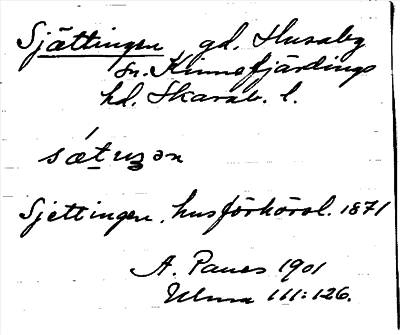 Sjättingen gd. Husaby
sn. Kinnefjärdings
hd. Skarab. l.
Sjettingen, husförhörsl. 1871
A. Panes 1901
111:126.